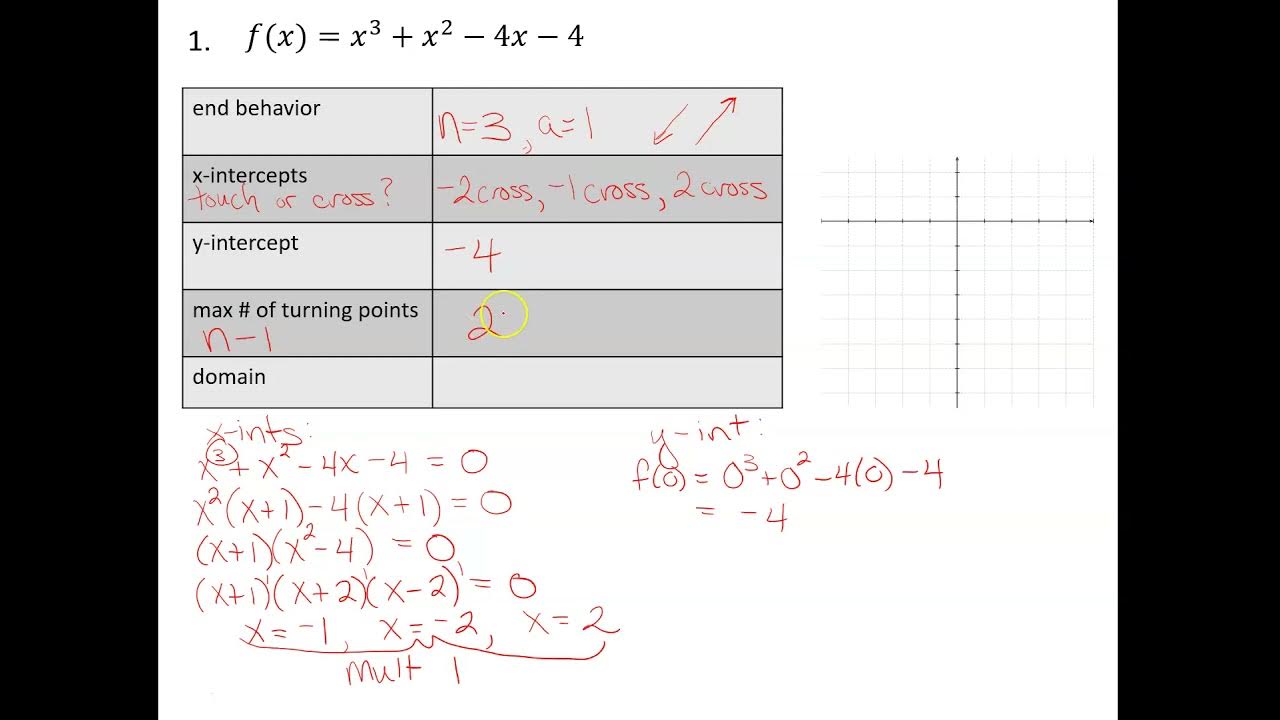 1. f(x) = x³ + x² − 4x − 4
end behavior
n=3, a=1 ↙ ↗
x-intercepts
touch or cross?
-2 cross, -1 cross, 2 cross
y-intercept
-4
max # of turning points
n-1
2
domain
x-ints:
x³ + x² - 4x - 4 = 0
x²(x+1) - 4(x+1) = 0
(x+1)(x²-4) = 0
(x+1)¹(x+2)¹(x-2)¹ = 0
x = -1, x = -2, x = 2
mult 1
y-int:
f(0) = 0³ + 0² - 4(0) - 4
= -4